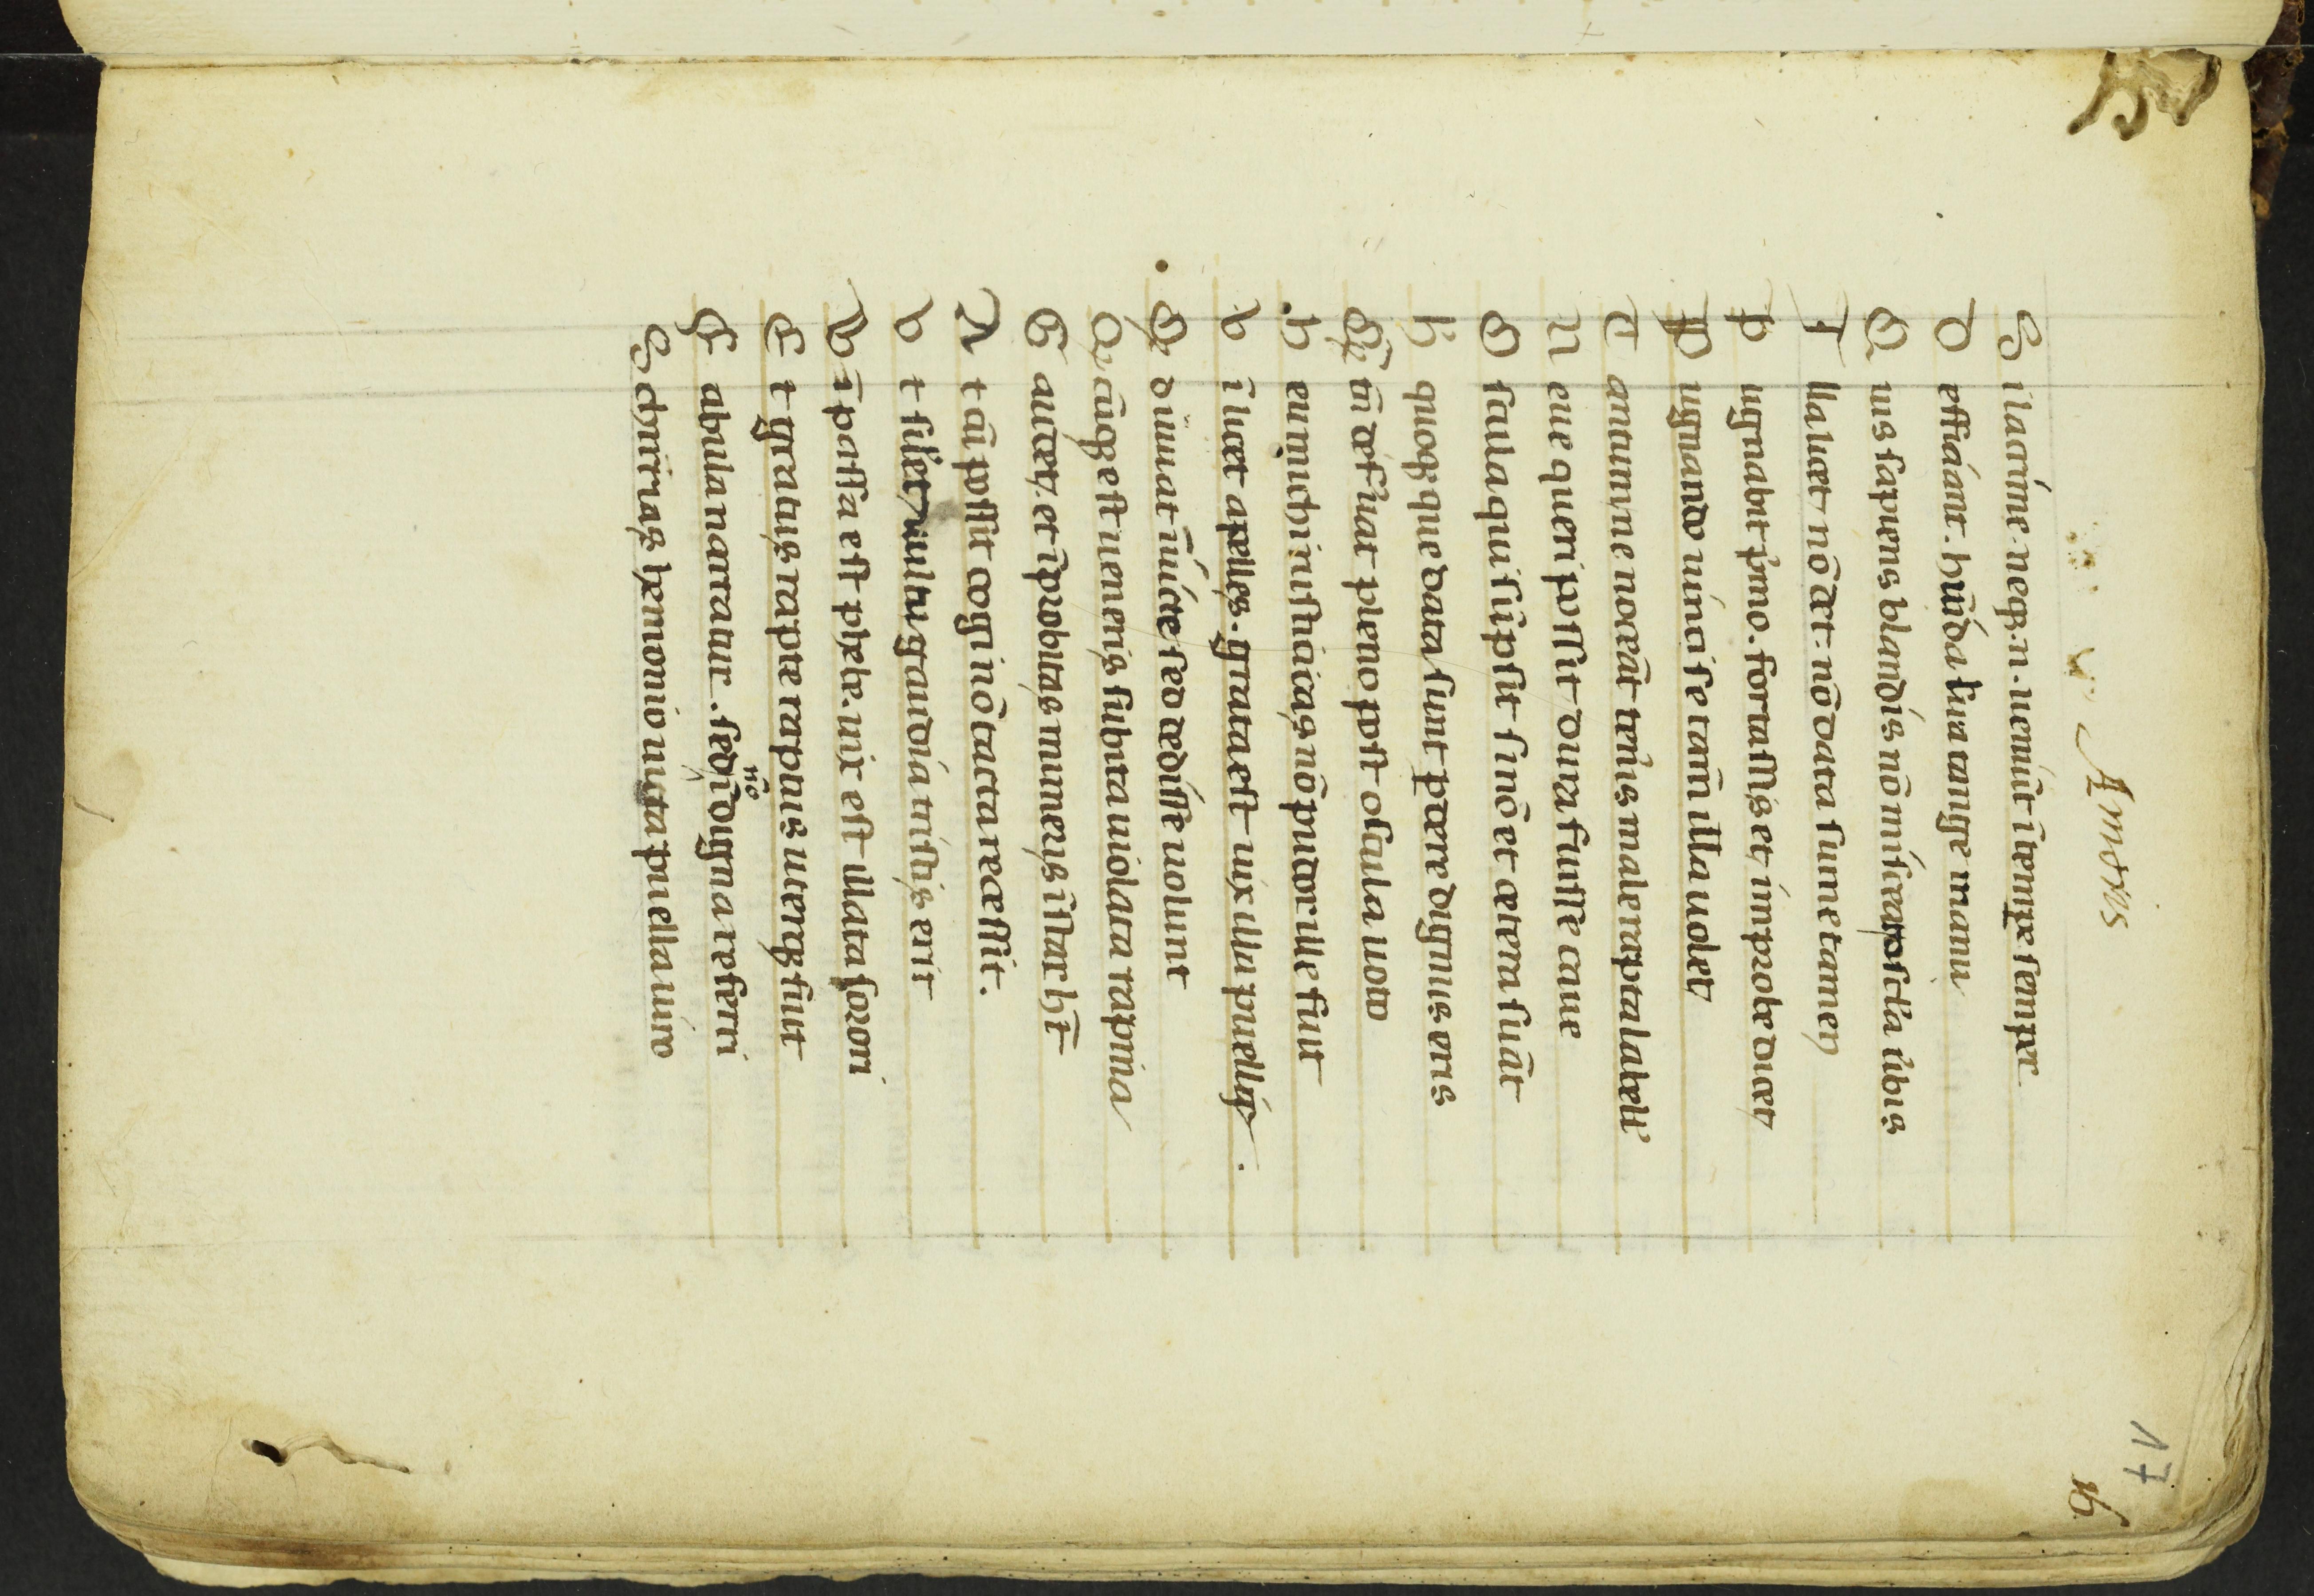 Amoris
17
16
Si lacrime neq. n. ueniūt ī tempe semper
Defficiant. huīda luīa tange manu
Quis sapiens blandis nō misceat oscla ūbis
Illa licet nō det. nō data sume tamen
Pugnabit pimo. fortassis et improbe dicet
Pugnando uinci se tamē illa uolet
Tantum ne noceāt teneris male rapta labellis
Neue queri possit dura fuisse caue
Oscula qui sūpsit si nō et cetera sumāt
H quoq que data sunt perdere dignus eris
Qtū defuerat pleno post oscula uoto
Heu michi rusticitas nō pudor ille fuit
Vī licet apelles. grata est uix illa puellis.
Qd iuuat īuicte sed dedisse uolunt
Qcūq est ueneris subita uiolata rapina
Gaudet et īprobitas muneris īstar hēt
At cū possit cogi nō tacta recessit.
Vt silet uultu gaudia tristis erit
Vī passa est phebe. uix est illata sorori
Et gratus rapte raptus uterq fuit
Fabula narratur. sed nō īdigna referri
Schirrias hemonio iucta puella uiro